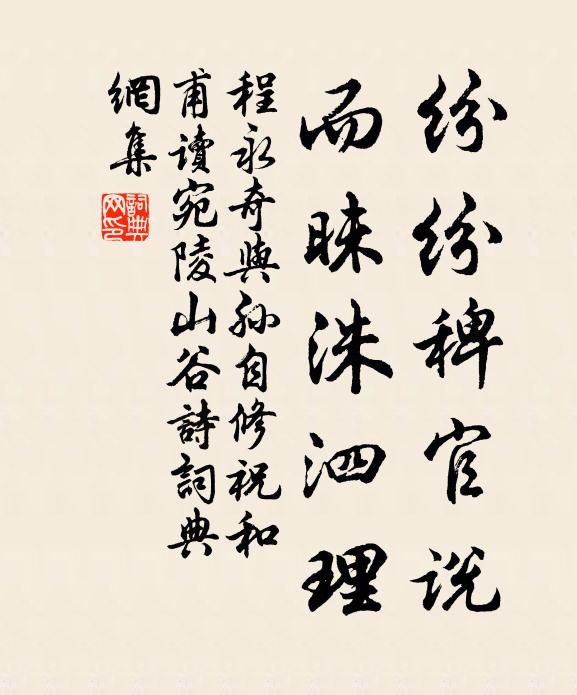 紛紛稗官說
而昧洙泗理
程永奇與孫自修祝和
甫讀宛陵山谷詩詞典
網集
詞典網印